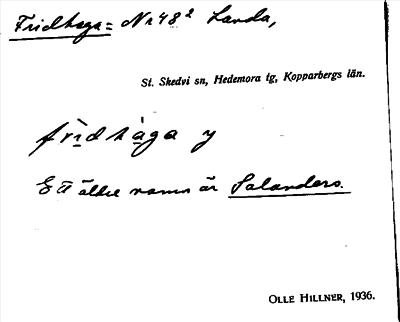 Fridhaga = Nr 48² Landa,
St. Skedvi sn, Hedemora tg, Kopparbergs län.
frìdhàga y
Ett äldre namn är Salanders.
OLLE HILLNER, 1936.